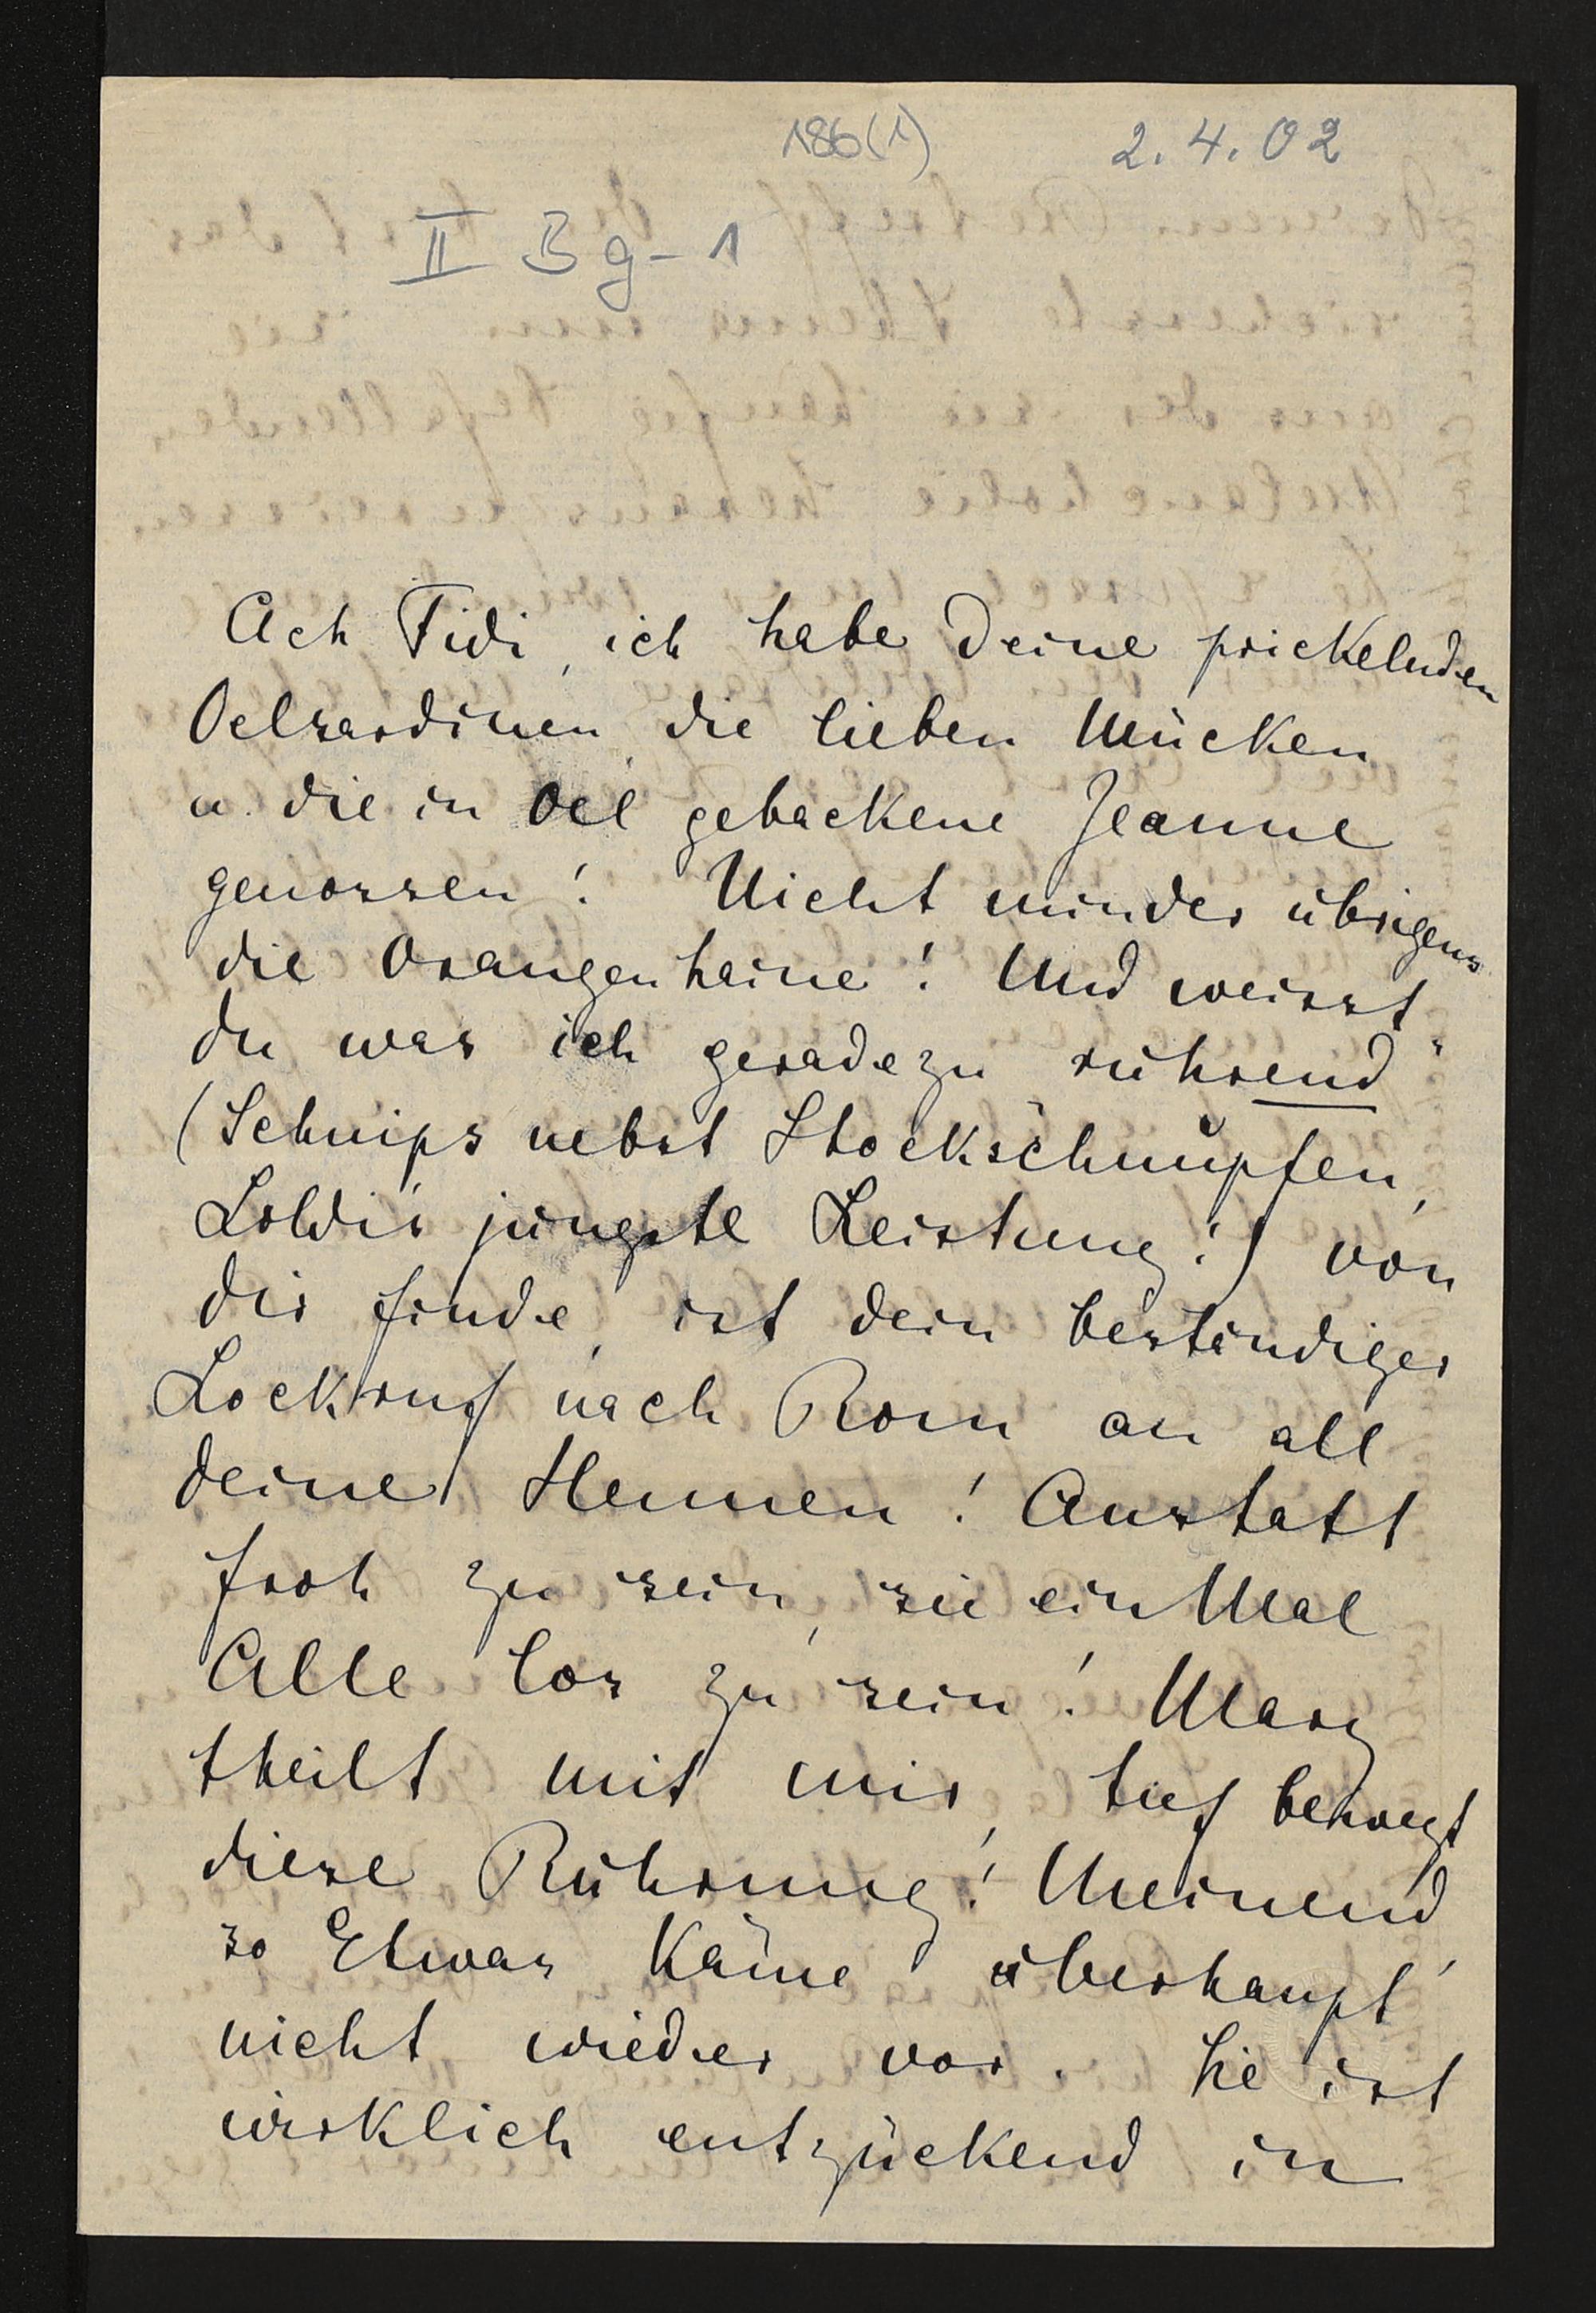 186(1)
2.4.02
II B g - 1
Ach Fidi, ich habe deine prickelnden
Oelsardinen, die lieben Mücken
u. die in Oel gebackene Jeanne
genossen! Nicht minder übrigens
die Orangenhaine! Und weisst
du was ich geradezu rührend
(Schnips nebst Stockschnupfen,
Loldi's jüngste Leistung!) von
dir finde, ist dein beständiger
Lockruf nach Rom an all
deine Hennen! Anstatt
froh zu sein, sie ein Mal
Alle los zu sein! Mary
theilt mit mir, tief bewegt
diese Rührung! Meinend,
so Etwas käme überhaupt
nicht wieder vor. Sie ist
wirklich entzückend in